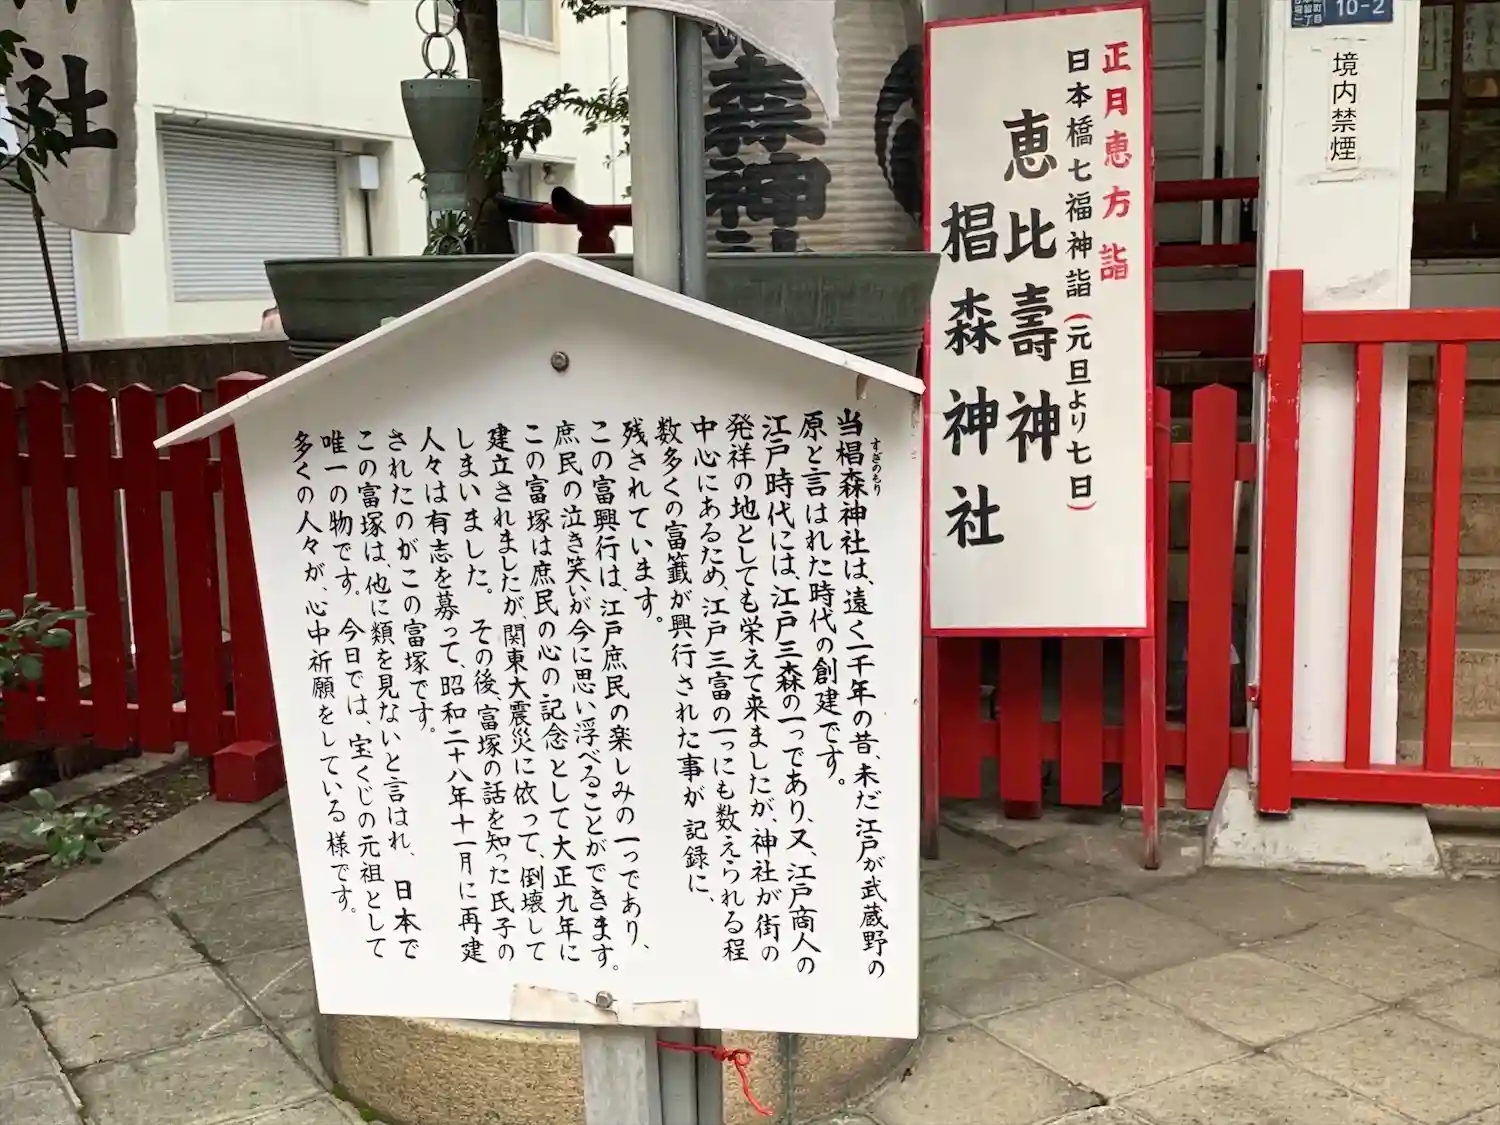 社
森神社
正月恵方詣
日本橋七福神詣(元旦より七日)
恵比壽神
椙森神社
10-2
境内禁煙
すぎのもり
当椙森神社は、遠く一千年の昔、未だ江戸が武蔵野の
原と言はれた時代の創建です。
江戸時代には、江戸三森の一つであり、又、江戸商人の
発祥の地としても栄えて来ましたが、神社が街の
中心にあるため、江戸三富の一つにも数えられる程
数多くの富籤が興行された事が記録に、
残されています。
この富興行は、江戸庶民の楽しみの一つであり、
庶民の泣き笑いが今に思い浮べることができます。
この富塚は庶民の心の記念として大正九年に
建立されましたが、関東大震災に依って、倒壊して
しまいました。その後、富塚の話を知った氏子の
人々は有志を募って、昭和二十八年十一月に再建
されたのがこの富塚です。
この富塚は、他に類を見ないと言はれ、日本で
唯一の物です。今日では、宝くじの元祖として
多くの人々が、心中祈願をしている様です。